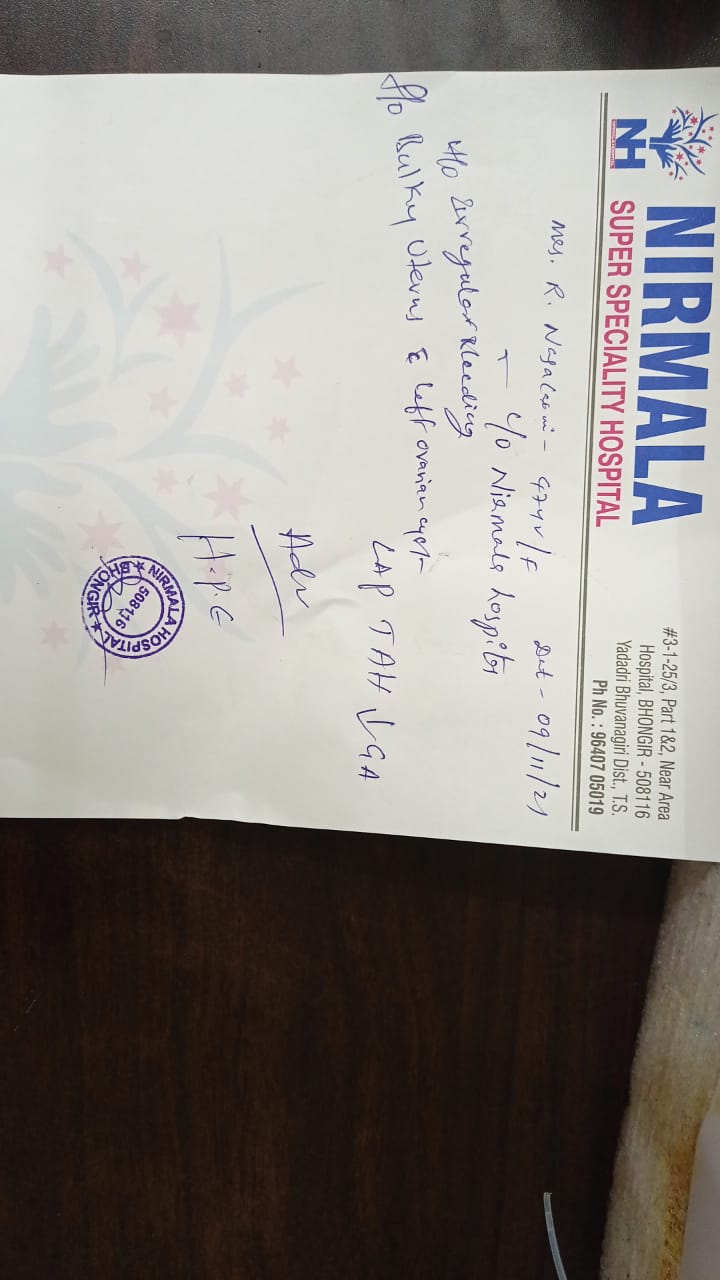 NH
NIRMALA
SUPER SPECIALITY HOSPITAL
#3-1-25/3, Part 1&2, Near Area
Hospital, BHONGIR - 508116
Yadadri Bhuvanagiri Dist., T.S.
Ph No. : 96407 05019
Mrs. R. Nagalaxmi - 47yr/F Dat - 09/11/21
C/o Nirmala hospital
H/o Irregular Bleeding
f/o Bulky Uterus c̄ left ovarian cyst
LAP TAH ↓ GA
Adv
H.P.E
NIRMALA HOSPITAL ★ BHONGIR ★
508116